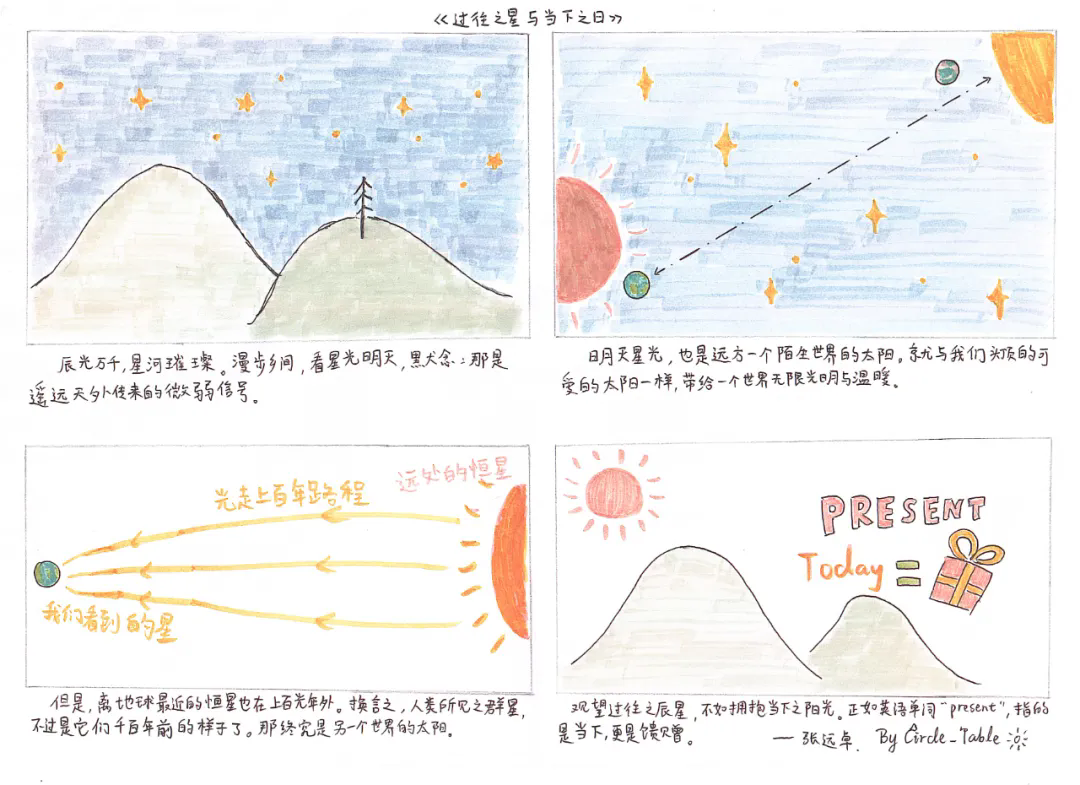 《过往之星与当下之日》
辰光万千,星河璀璨。漫步乡间,看星光明灭,默念:那是
遥远天外传来的微弱信号。
明灭星光,也是远方一个陌生世界的太阳。就与我们头顶的可
爱的太阳一样,带给一个世界无限光明与温暖。
远处的恒星
光走上百年路程
我们看到的星
但是,离地球最近的恒星也在上百光年外。换言之,人类所见之群星,
不过是它们千百年前的样子了。那终究是另一个世界的太阳。
PRESENT
Today =
观望过往之辰星,不如拥抱当下之阳光。正如英语单词“present”,指的
是当下,更是馈赠。
— 张远卓. By Circle_Table